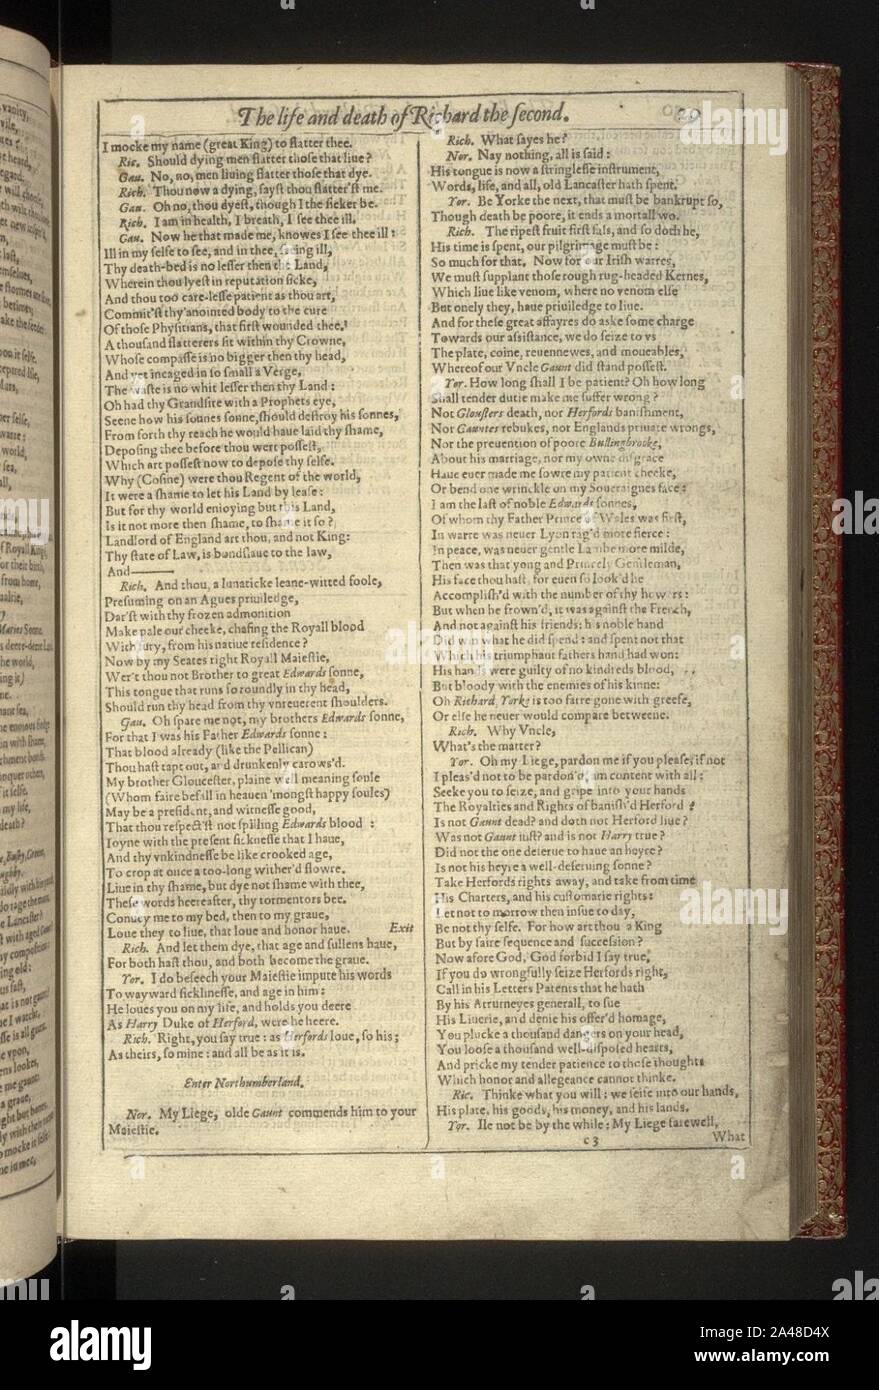 The life and death of Richard the second. 29
I mocke my name (great King) to flatter thee.
Ric. Should dying men flatter those that liue?
Gau. No, no, men liuing flatter those that dye.
Rich. Thou now a dying, sayst thou flatter'st me.
Gau. Oh no, thou dyest, though I the sicker be.
Rich. I am in health, I breath, I see thee ill.
Gau. Now he that made me, knowes I see thee ill:
Ill in my selfe to see, and in thee, seeing ill,
Thy death-bed is no lesser then the Land,
Wherein thou lyest in reputation sicke,
And thou too care-lesse patient as thou art,
Commit'st thy'anointed body to the cure
Of those Physitians, that first wounded thee.
A thousand flatterers sit within thy Crowne,
Whose compasse is no bigger then thy head,
And yet incaged in so small a Verge,
The waste is no whit lesser then thy Land:
Oh had thy Grandsire with a Prophets eye,
Seene how his sonnes sonne, should destroy his sonnes,
From forth thy reach he would haue laid thy shame,
Deposing thee before thou wert possest,
Which art possest now to depose thy selfe.
Why (Cosine) were thou Regent of the world,
It were a shame to let his Land by lease:
But for thy world enioying but this Land,
Is it not more then shame, to shame it so?
Landlord of England art thou, and not King:
Thy state of Law, is bondslaue to the law,
And———
Rich. And thou, a lunaticke leane-witted foole,
Presuming on an Agues priuiledge,
Dar'st with thy frozen admonition
Make pale our cheeke, chafing the Royall blood
With fury, from his natiue residence?
Now by my Seates right Royall Maiestie,
Wer't thou not Brother to great Edwards sonne,
This tongue that runs so roundly in thy head,
Should run thy head from thy vnreuerent shoulders.
Gau. Oh spare me not, my brothers Edwards sonne,
For that I was his Father Edwards sonne:
That blood already (like the Pellican)
Thou hast tapt out, and drunkenly carows'd.
My brother Gloucester, plaine well meaning soule
(Whom faire befall in heauen 'mongst happy soules)
May be a president, and witnesse good,
That thou respect'st not spilling Edwards blood:
Ioyne with the present sicknesse that I haue,
And thy vnkindnesse be like crooked age,
To crop at once a too-long wither'd flowre.
Liue in thy shame, but dye not shame with thee,
These words heereafter, thy tormentors bee.
Conuey me to my bed, then to my graue,
Loue they to liue, that loue and honor haue. Exit
Rich. And let them dye, that age and sullens haue,
For both hast thou, and both become the graue.
Yor. I do beseech your Maiestie impute his words
To wayward sicklinesse, and age in him:
He loues you on my life, and holds you deere
As Harry Duke of Herford, were he heere.
Rich. Right, you say true: as Herfords loue, so his;
As theirs, so mine: and all be as it is.
Enter Northumberland.
Nor. My Liege, olde Gaunt commends him to your
Maiestie.
Rich. What sayes he?
Nor. Nay nothing, all is said:
His tongue is now a stringlesse instrument,
Words, life, and all, old Lancaster hath spent.
Yor. Be Yorke the next, that must be bankrupt so,
Though death be poore, it ends a mortall wo.
Rich. The ripest fruit first fals, and so doth he,
His time is spent, our pilgrimage must be:
So much for that. Now for our Irish warres,
We must supplant those rough rug-headed Kernes,
Which liue like venom, where no venom else
But onely they, haue priuiledge to liue.
And for these great affayres do aske some charge
Towards our assistance, we do seize to vs
The plate, coine, reuennewes, and moueables,
Whereof our Vncle Gaunt did stand possest.
Yor. How long shall I be patient? Oh how long
Shall tender dutie make me suffer wrong?
Not Glousters death, nor Herfords banishment,
Nor Gauntes rebukes, nor Englands priuate wrongs,
Nor the preuention of poore Bullingbrooke,
About his marriage, nor my owne disgrace
Haue euer made me sowre my patient cheeke,
Or bend one wrinckle on my Soueraignes face:
I am the last of noble Edwards sonnes,
Of whom thy Father Prince of Wales was first,
In warre was neuer Lyon rag'd more fierce:
In peace, was neuer gentle Lambe more milde,
Then was that yong and Princely Gentleman,
His face thou hast, for euen so look'd he
Accomplish'd with the number of thy howers:
But when he frown'd, it was against the French,
And not against his friends: his noble hand
Did win what he did spend: and spent not that
Which his triumphant fathers hand had won:
His hands were guilty of no kindreds blood,
But bloody with the enemies of his kinne:
Oh Richard, Yorke is too farre gone with greefe,
Or else he neuer would compare betweene.
Rich. Why Vncle,
What's the matter?
Yor. Oh my Liege, pardon me if you please, if not
I pleas'd not to be pardon'd, am content with all:
Seeke you to seize, and gripe into your hands
The Royalties and Rights of banish'd Herford?
Is not Gaunt dead? and doth not Herford liue?
Was not Gaunt iust? and is not Harry true?
Did not the one deserue to haue an heyre?
Is not his heyre a well-deseruing sonne?
Take Herfords rights away, and take from time
His Charters, and his customarie rights:
Let not to morrow then insue to day,
Be not thy selfe. For how art thou a King
But by faire sequence and succession?
Now afore God, God forbid I say true,
If you do wrongfully seize Herfords right,
Call in his Letters Patents that he hath
By his Atturneyes generall, to sue
His Liuerie, and denie his offer'd homage,
You plucke a thousand dangers on your head,
You loose a thousand well-disposed hearts,
And pricke my tender patience to those thoughts
Which honor and allegeance cannot thinke.
Ric. Thinke what you will: we seise into our hands,
His plate, his goods, his money, and his lands.
Yor. Ile not be by the while: My Liege farewell,
c3 What
alamy
Image ID: 2A48D4X
www.alamy.com